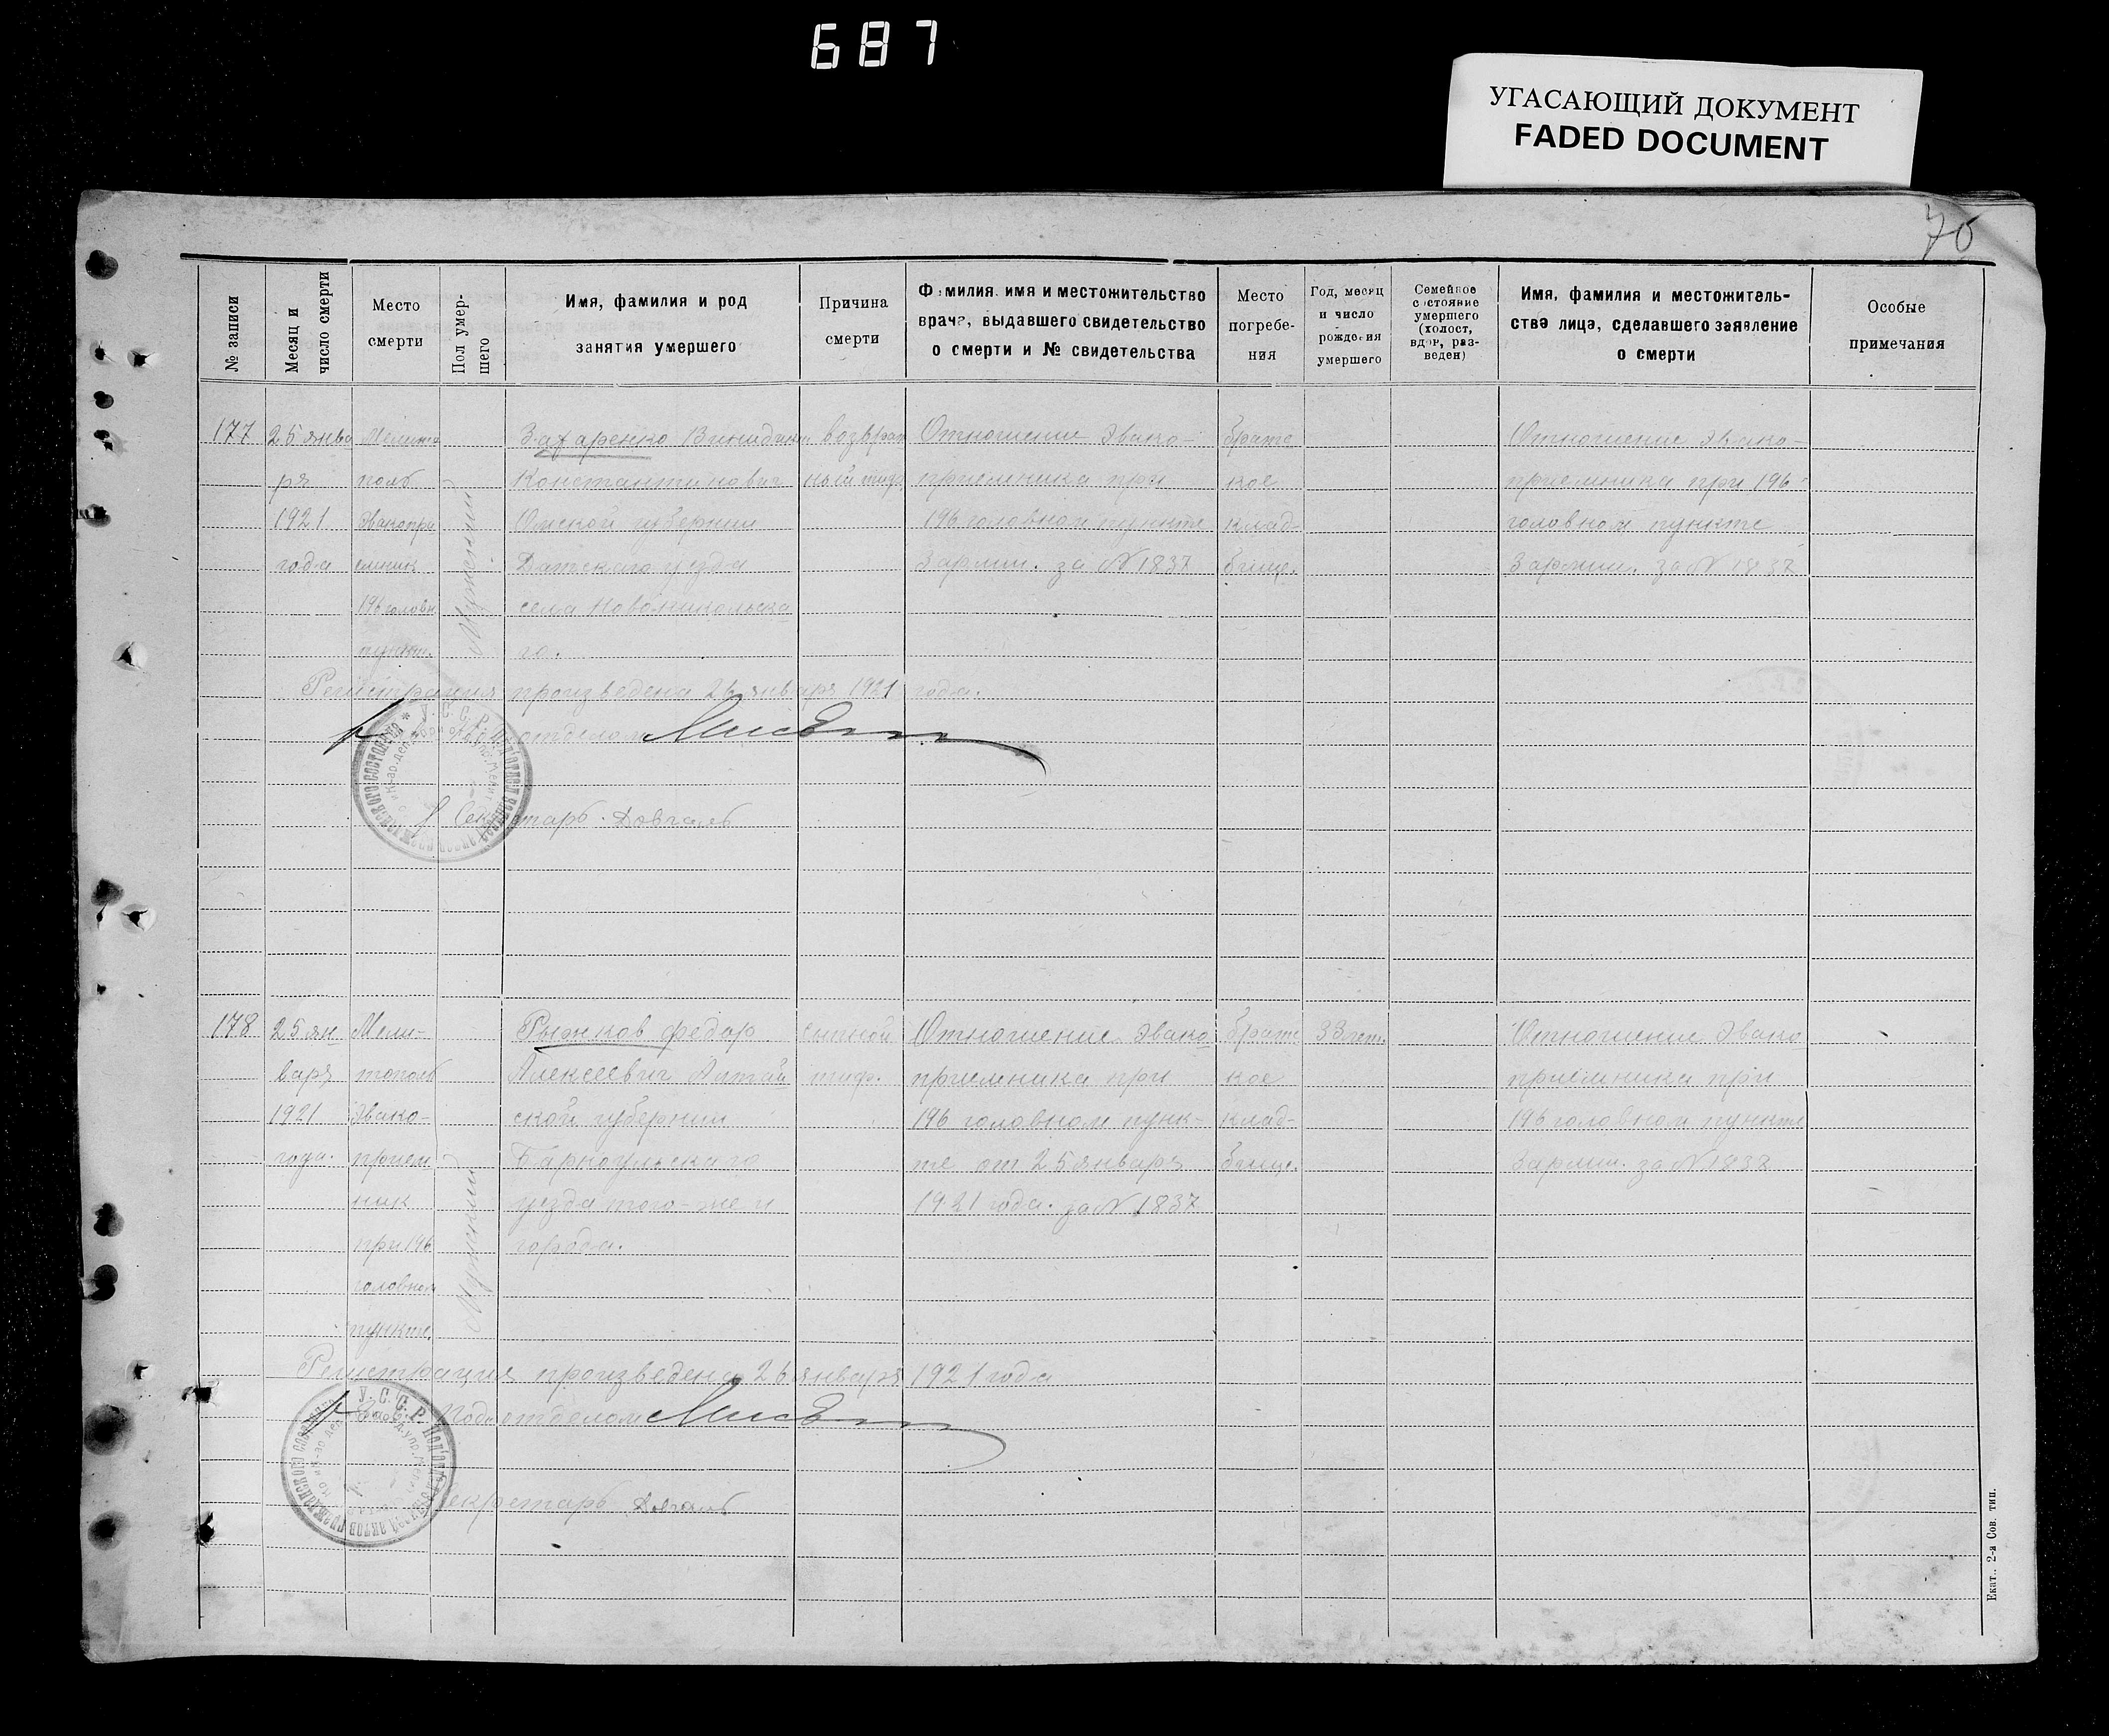 687
УГАСАЮЩИЙ ДОКУМЕНТ
FADED DOCUMENT
70
№ записи
Месяц и
число смерти
Место
смерти
Пол умер-
шего
Имя, фамилия и род
занятия умершего
Причина
смерти
Фамилия, имя и местожительство
врача, выдавшего свидетельство
о смерти и № свидетельства
Место
погребе-
ния
Год, месяц
и число
рождения
умершего
Семейное
состояние
умершего
(холост,
вдов, раз-
веден)
Имя, фамилия и местожитель-
ство лица, сделавшего заявление
о смерти
Особые
примечания
177
25 янва
ря
1921
года
Мелито
поль
Эвакопри
емник
196 головн
пункт.
Мужской
Захаренко
Константинович
Омской губернии
уезда
села Новоникольска
го.
возврат
ный тиф
Отношение Эвако-
приемника при
196 головном пункте
3 армии. за № 1837
братс
кое
клад-
бище.
Отношение Эвако-
приемника при 196-
головном пункте
3 армии. за № 1837
Регистрация произведена 26 января 1921 года.
отделом
Секретарь Довгаль
178
25 ян
варя
1921
года.
Мели-
тополь
Эвако-
прием
ник
при 196
головном
пункте.
Мужской
Рыжков Федор
Алексеевич Алтай
ской губернии
Барнаульскаго
уезда того-же и
города.
сыпной
тиф.
Отношение Эвако
приемника при
196 головном пунк-
те от 25 января
1921 года. за № 1837
братс
кое
клад-
бище.
33 лет.
Отношение Эвако
приемника при
196 головном пункте
3 армии. за № 1838
Регистрация произведена 26 января 1921 года
Подотделом
Секретарь Довгаль
У.С.С.Р.
Екат., 2-я Сов. тип.